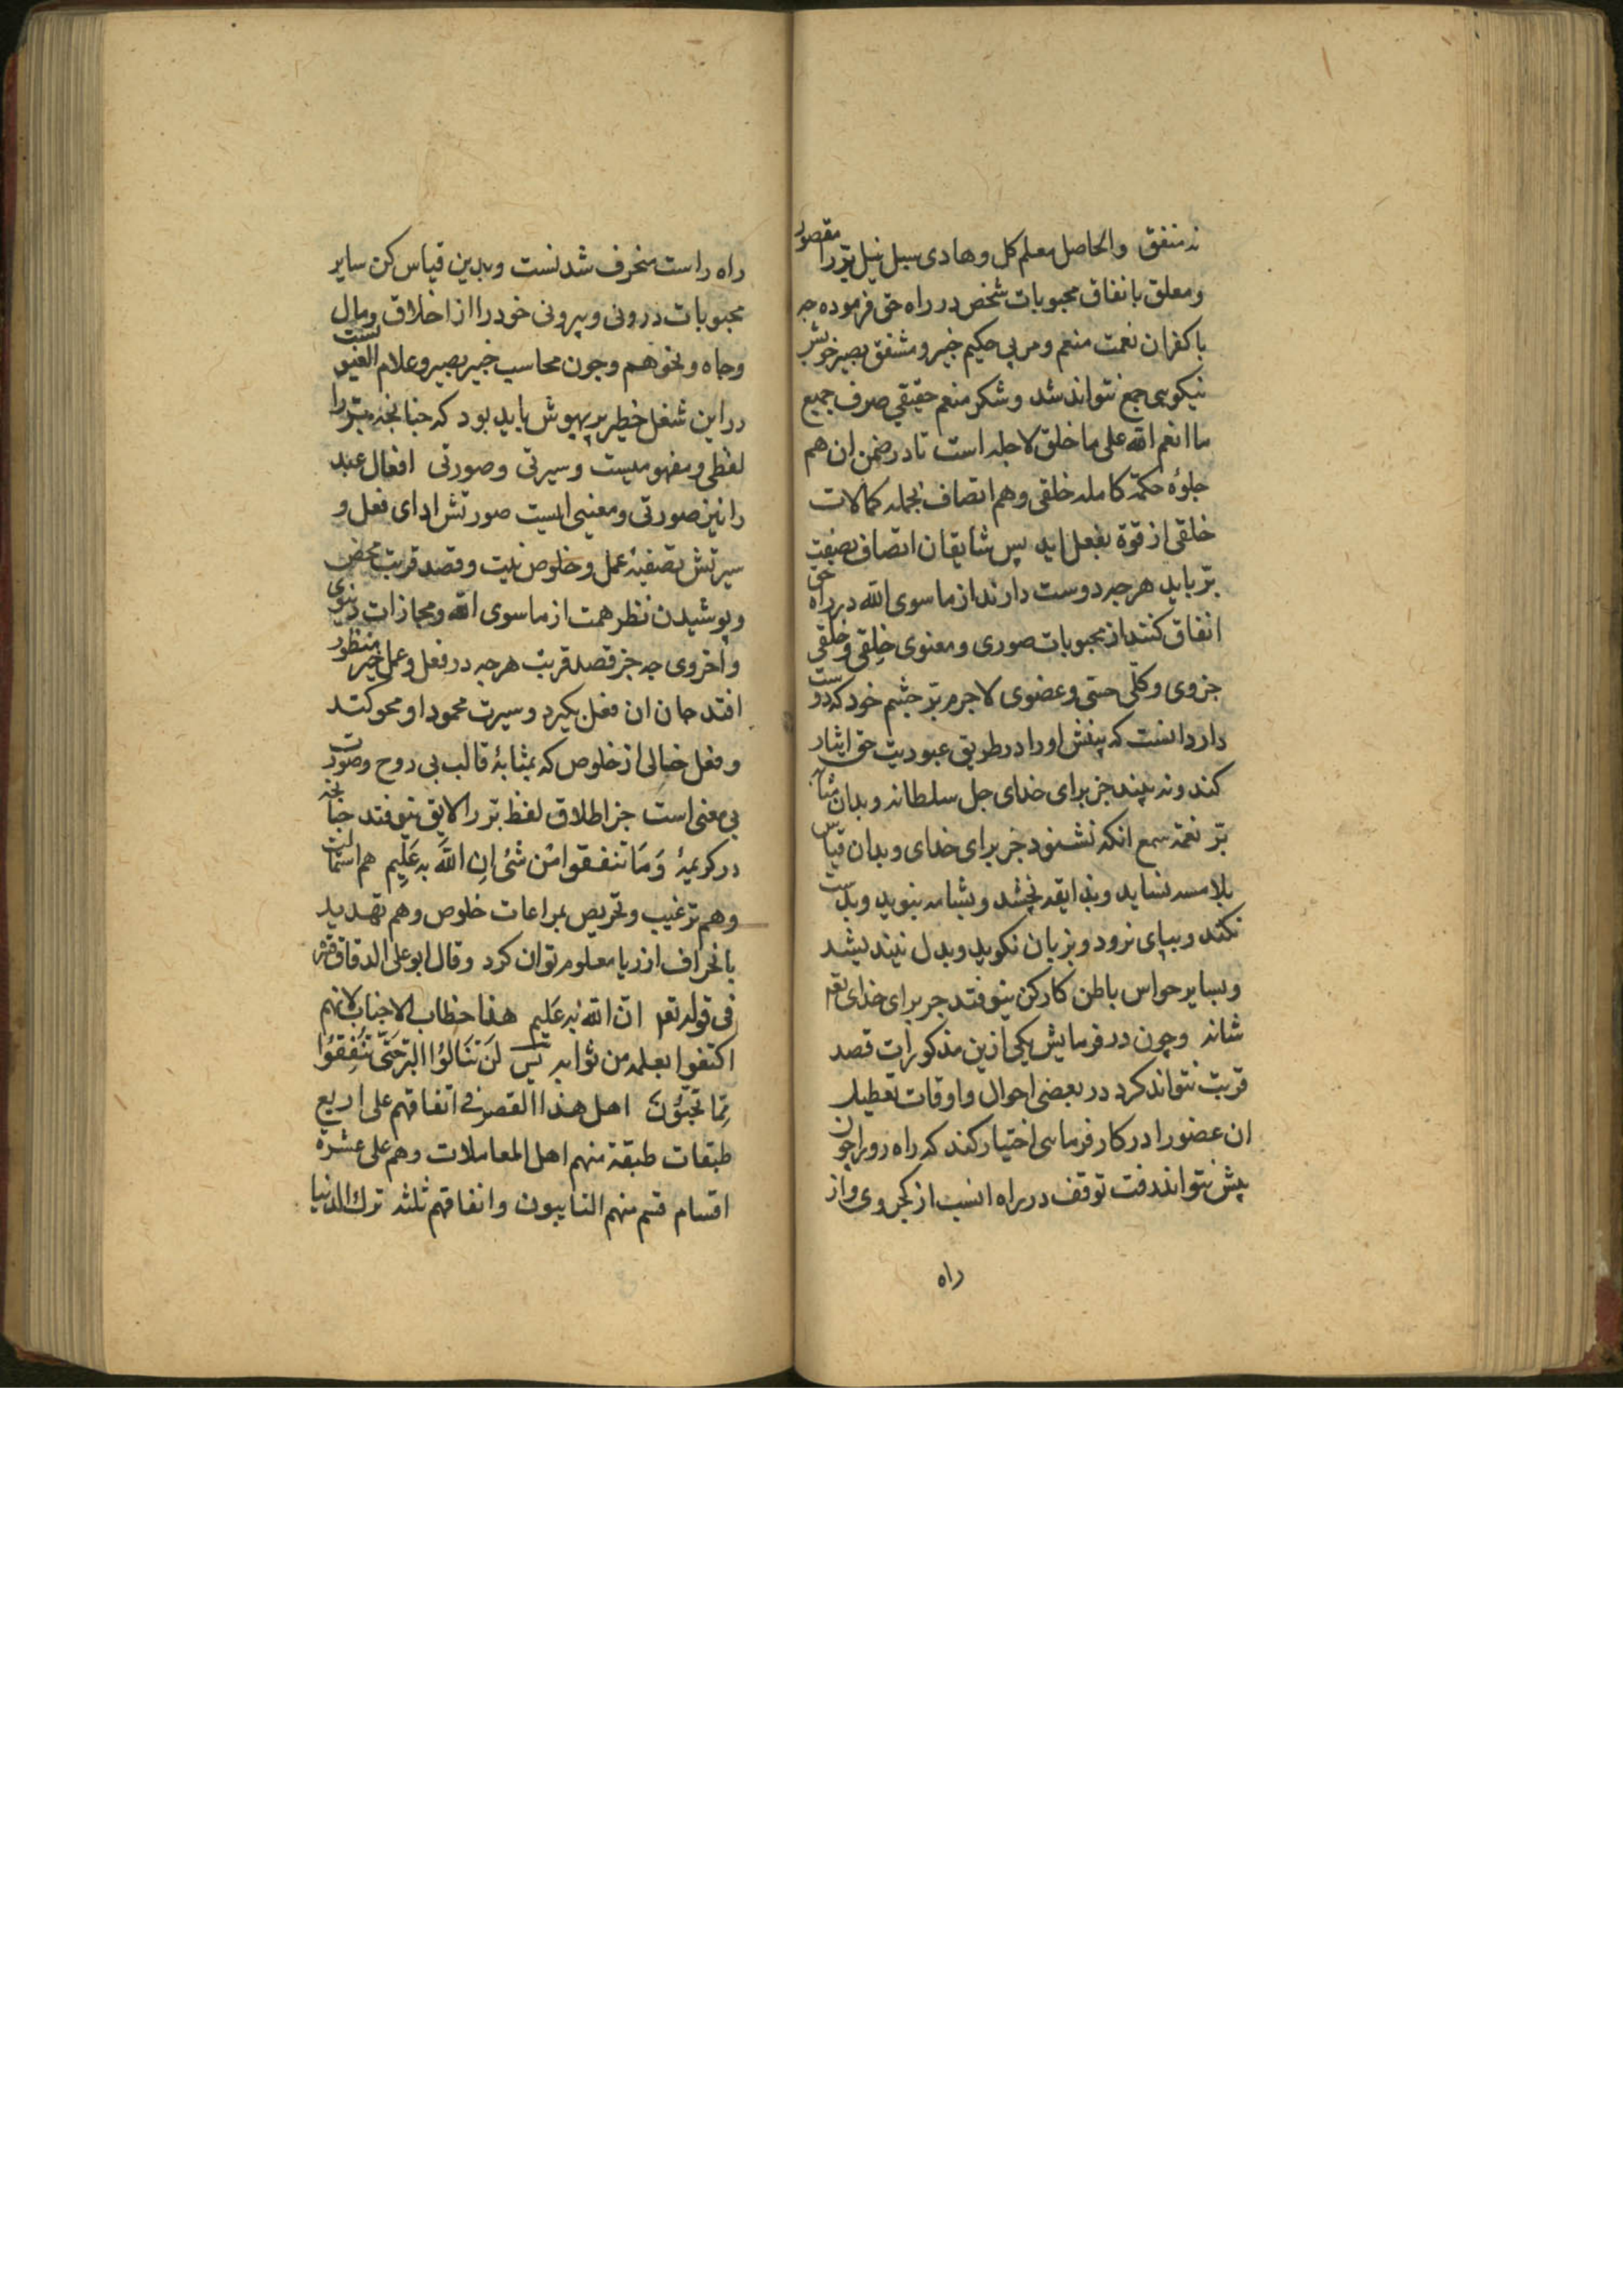 نه منفق والحاصل معلم کل وهادی سبل نیل بّر را مقصور
ومعلق بانفاق محبوبات شخص در راه حق فرموده چه
با کفران نعمت منعم ومربی حکیم خبیر ومشفق بصیر خویش
نیکویی جمع نتواند شد وشکر منعم حقیقی صرف جمیع
ما انعم الله علی ما خلق لاجله است تا در ضمن ان هم
جلوه حکمة کامله خلقی وهم اتصاف بجمله کمالات
خلقی از قوة بفعل اید پس شایقان اتصاف بصفت
بّر باید هرچه دوست دارند از ماسوی الله در راه حق
انفاق کنند از محبوبات صوری ومعنوی خِلقی وخُلقی
جزوی وکلّی حسّی وعضوی لاجرم بّر چشم خود که دوست
دارد انست که بینش او را در طریق عبودیت حق ایثار
کند ونه بیند جز برای خدای جل سلطانه وبدان مثابه
بّر نعمة سمع انکه نشنود جز برای خدای وبدان قیاس
بلامسه نساید وبذایقه نچشد وبشامه نبوید وبدست
نکند وبپای نرود وبزبان نکوید وبدل نیندیشد
وبسایر حواس باطن کارکن نیوفتد جز برای خدای تعه
شانه وچون در فرمایش یکی ازین مذکورات قصد
قربت نتواند کرد در بعضی احوال واوقات تعطیل
ان عضو را در کار فرمایی اختیار کند که راه رو را چون
پیش نتواند رفت توقف در راه انسب از کجروی واز
راه
راه راست منحرف شدنست وبدین قیاس کن سایر
محبوبات درونی وبیرونی خود را از اخلاق ومال
وجاه ونحوهم وچون محاسب خبیر بصیر وعلام الغیوبست
در این شغل خطیر پر بهوش باید بود که چنانچه بّر را
لفظی ومفهومیست وسیرتی وصورتی افعال عبد
را نیز صورتی ومعنیی ایست صورتش ادای فعل و
سیرتش تصفیهٔ عمل وخلوص نیت وقصد قربت محض
وپوشیدن نظر همت از ماسوی الله ومجازات دنیوی
واخروی چه جز قصد قربت هرچه در فعل وعمل خیر منظور
افتد جان ان فعل بکیرد وسیرت محمود او محو کند
وفعل خالی از خلوص که بمثابهٔ قالب بی روح وصورت
بی معنی است جز اطلاق لفظ بّر را لایق نیوفتد چنانچه
در کریمهٔ وَمَا تنفقوا مِن شَیٔ اِن اللَّهَ بهِ عَلِیم هم استمالت
وهم ترغیب وتحریص بمراعات خلوص وهم تهدید
بانحراف از ریا معلوم توان کرد وقال ابو علی الدقاق قدّه
فی قوله تعه انّ الله بهِ عَلیم هذا خطاب الاجناب لانهم
اکتفوا بعلمه من ثوابه لَن تَنَالُوا البّر حَتّی تُنفِقُوا
مِمّا تحبّوُنَ اهل هذا القصر فی انفاقهم علی اربع
طبقات طبقة منهم اهل المعاملات وهم علی عشرة
اقسام قسم منهم التایبون وانفاقهم ثلثه ترک الدنیا